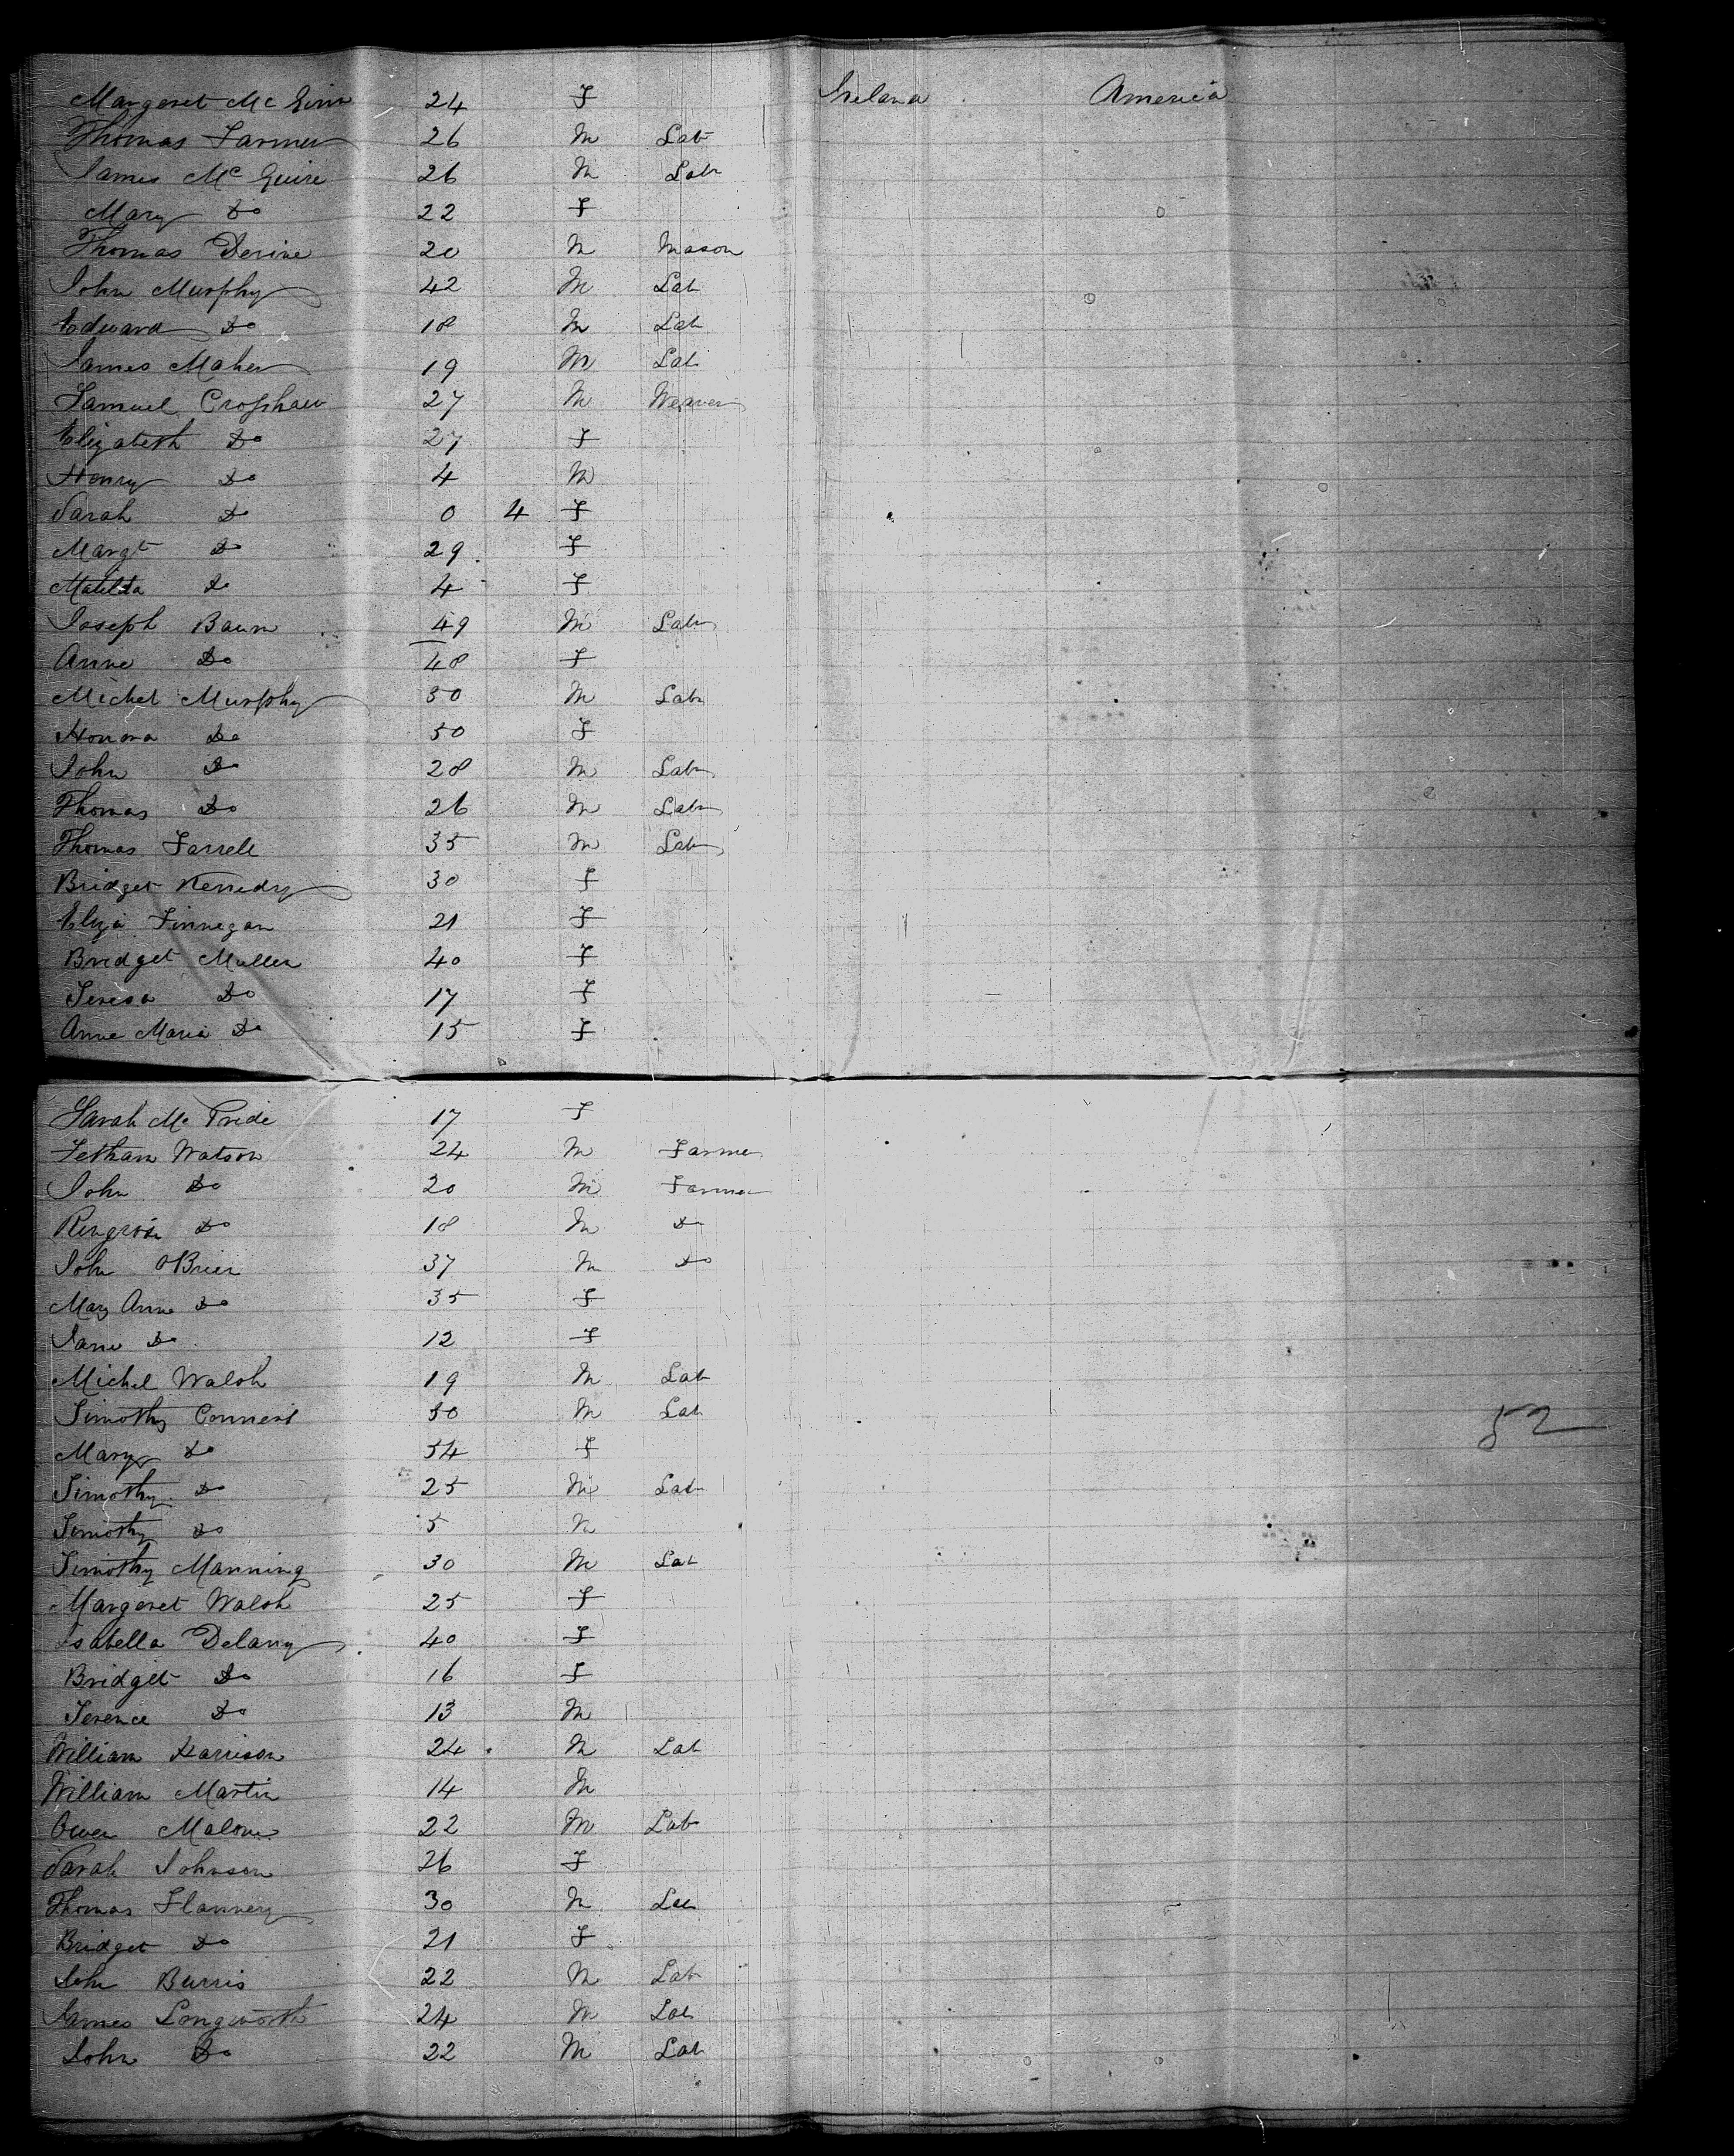 Margaret Mc Ginn 24 F Ireland America
Thomas Farmer 26 M Lab
James Mc Guire 26 M Labr
Mary Do 22 F
Thomas Devine 20 M Mason
John Murphy 42 M Lab
Edward Do 18 M Lab
James Maher 19 M Lab
Samuel Crosshaw 27 M Weaver
Elizabeth Do 27 F
Henry Do 4 M
Sarah Do 0 4 F
Margt Do 29 F
Matilda Do 4 F
Joseph 49 M Labr
Anne Do 48 F
Michel Murphy 50 M Labr
Honora Do 50 F
John Do 28 M Labr
Thomas Do 26 M Labr
Thomas Farrell 35 M Labr
Bridget Kennedy 30 F
Eliza Finnegan 21 F
Bridget Mullen 40 F
Teresa Do 17 F
Anne Maria Do 15 F
Sarah Mc Pride 17 F
Watson 24 M Farmer
John Do 20 M Farmer
Ringrose Do 18 M Do
John OBrien 37 M Do
Mary Anne Do 35 F
Jane Do 12 F
Michel Walsh 19 M Lab
Timothy 50 M Lab
52
Mary Do 54 F
Timothy Do 25 M Labr
Timothy Do 5 M
Timothy Manning 30 M Lab
Margaret Walsh 25 F
Isabella Delany 40 F
Bridget Do 16 F
Terence Do 13 M
William Harrison 24 M Lab
William Martin 14 M
Owen Malone 22 M Lab
Sarah Johnson 26 F
Thomas Flannery 30 M Lab
Bridget Do 21 F
John Burris 22 M Lab
James Longworth 24 M Lab
John Do 22 M Lab